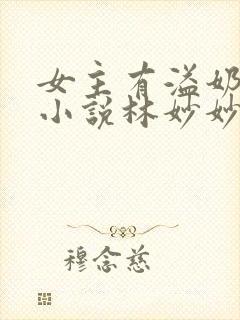 女主有溢奶
小说林妙妙
穆念慈